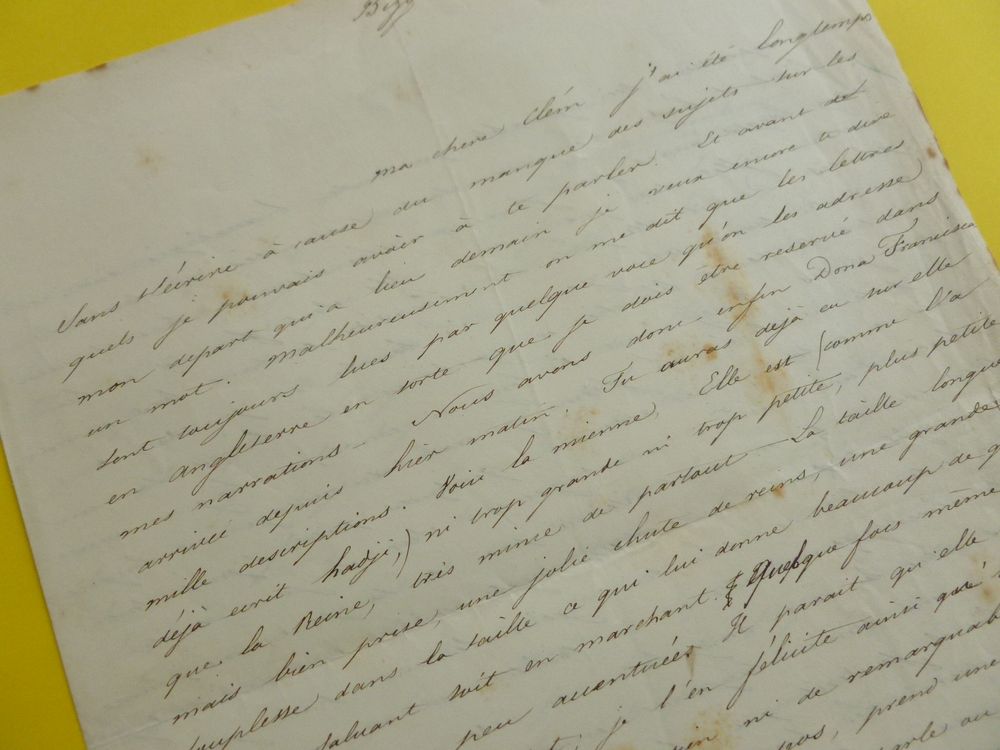 ma chere Clém j'ai été longtemps
sans t'écrire à cause du manque des sujets sur les
quels je pouvais avoir à te parler. Et avant de
mon depart qui a lieu demain je veux encore te dire
un mot. Malheureusement on me dit que les lettres
sont toujours lues par quelque voie qu'on les adresse
en angleterre en sorte que je dois être reservé dans
mes narrations - Nous avons donc enfin Dona Francisca
arrivée depuis hier matin. Tu auras déjà eu sur elle
mille descriptions. Voici la mienne. Elle est (comme l'a
déjà ecrit hadji,) ni trop grande ni trop petite, plus petite
que la Reine, très mince de partout - La taille longue
mais bien prise, une jolie chute de reins, une grande
souplesse dans la taille ce qui lui donne beaucoup de
saluant soit en marchant. Quelque fois même
peu accentuées. Il parait qu'elle
je l'en félicite ainsi que
ni de remarquab
prend une